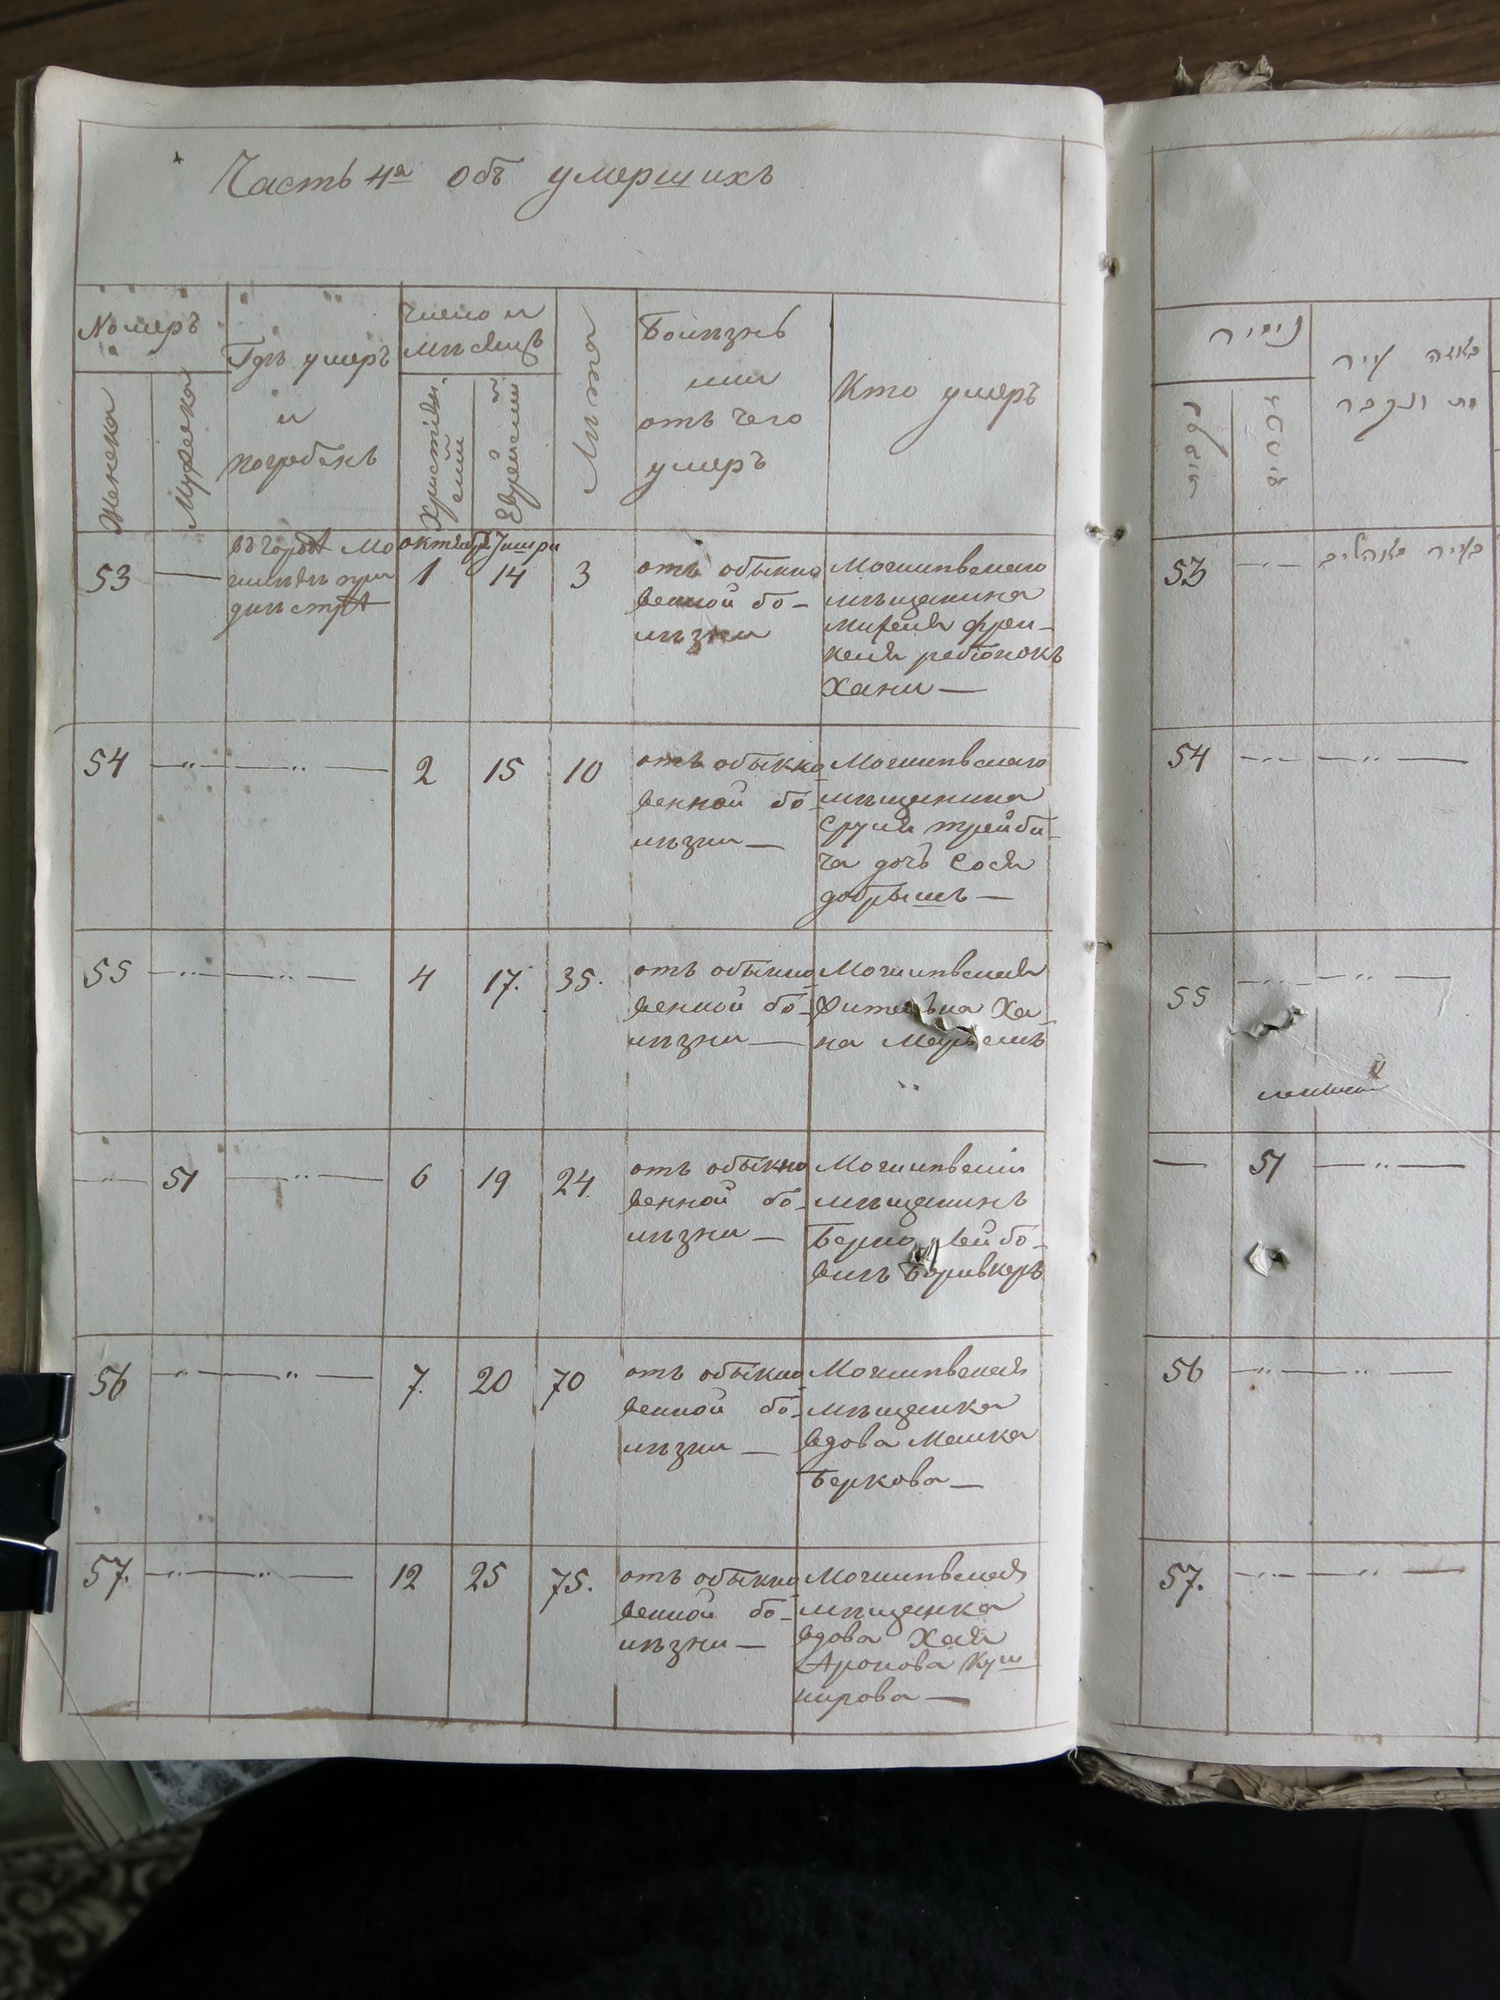 Часть 4я объ умершихъ
Номеръ
Женска
Мужеска
Гдѣ умеръ
и
погребенъ
Число и
мѣсяцъ
Христіян-
скій
Еврейскій
Лѣта
Болѣзнь
или
отъ чего
умеръ
Кто умеръ
53 —
въ городѣ Мо
гилевѣ при
днѣстрѣ
октября Тишри
1 14 3
отъ обыкно
венной бо-
лѣзни
Могилевскаго
мѣщанина
френ-
келя ребіонокъ
Хани —
54 —"— —"— 2 15 10
отъ обыкно
венной бо-
лѣзни —
Могилевскаго
мѣщанина
Сруля трейби-
ча дочь Сося
добрышъ —
55 —"— —"— 4 17. 35.
отъ обыкно
венной бо-
лѣзни —
Могилевская
жителька Ха-
на
—"— 51 —"— 6 19 24.
отъ обыкно
венной бо-
лѣзни —
Могилевскій
мѣщанинъ
Берко Лейбо-
вичъ
56 —"— —"— 7. 20 70
отъ обыкно
венной бо-
лѣзни —
Могилевская
мѣщанка
вдова Малка
Беркова —
57. —"— —"— 12 25 75.
отъ обыкно
венной бо-
лѣзни —
Могилевская
мѣщанка
вдова Хая
Аронова Куш
нирова —
נומיר
53 —"—
54 —"— —"—
55 —"— —"—
— 51 —"—
56 —"— —"—
57. —"— —"—